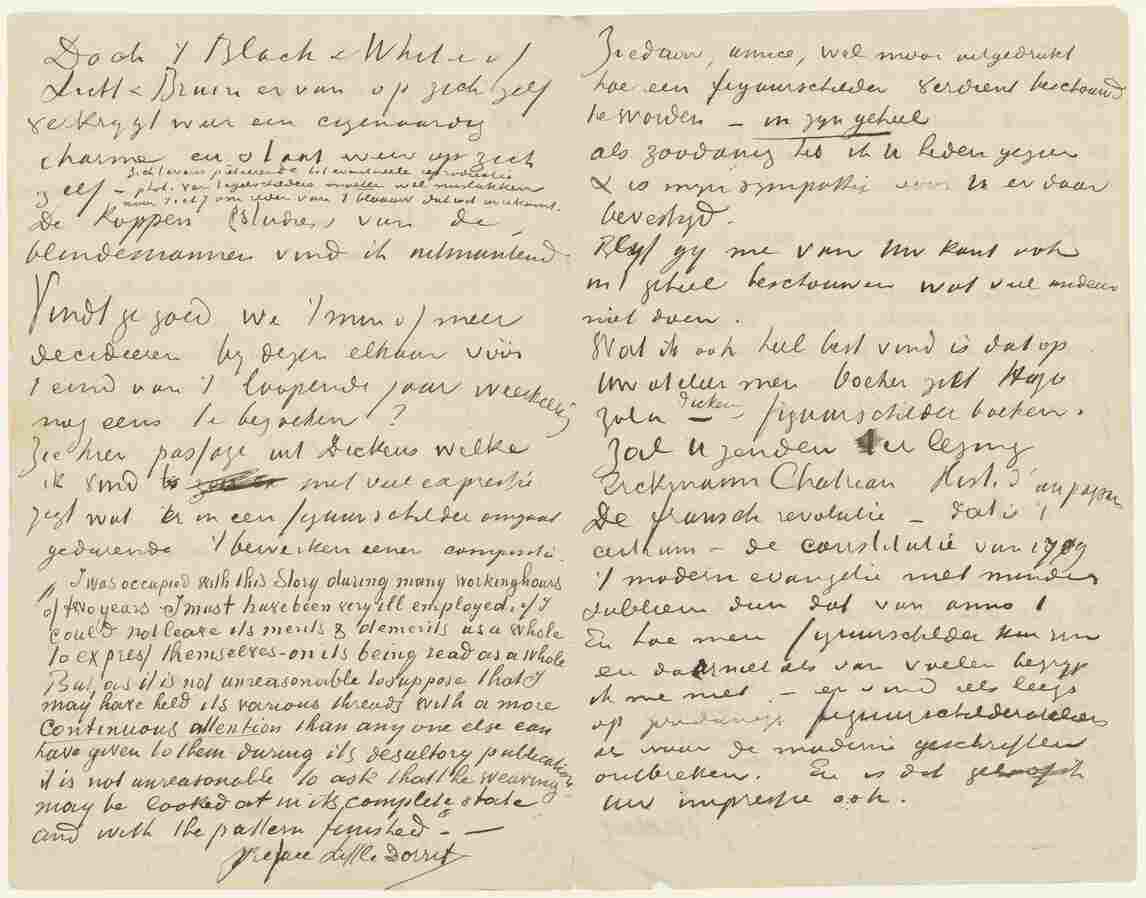 Doch 't Black & White of
Licht & Bruin ervan op zich zelf
verkrijgt weer een eigenaardig
charme en staat weer op zich
zelf –
De koppen (studies) van de
blindemannen vind ik uitmuntend.
Vindt ge goed we 't min of meer
decideeren bij dezen elkaar vóór
't eind van 't loopende jaar weerkeerig
nog eens te bezoeken ?
Zie hier passage uit Dickens welke
ik vind met veel expressie
zegt wat er in een figuurschilder omgaat
gedurende 't bewerken eener compositie
„I was occupied with this Story during many working hours
of two years I must have been very ill employed, if I
could not leave its merits & demerits as a whole
to express themselves – on its being read as a whole
But, as it is not unreasonable to suppose that I
may have held its various threads with a more
continuous attention than any one else can
have given to them during its desultory publication
it is not unreasonable to ask that the weaving
may be looked at in its complete state
and with the pattern finished – —
preface Little Dorrit
Ziedaar, amice, wel mooi uitgedrukt
hoe een figuurschilder verdient beschouwd
te worden – in zyn geheel
als zoodanig heb ik U heden gezien
& is mijn sympathie voor U er door
bevestigd.
Blijf gy me van Uw kant ook
in 't geheel beschouwen wat veel anderen
niet doen.
Wat ik ook heel best vind is dat op
Uw atelier men boeken ziet Hugo
Zola Dickens – figuurschilder boeken.
Zal U zenden ter lezing
Erckmann Chatrian Hist. d'un paysan
De fransch revolutie – dat is 't
centrum – de constitutie van 1789
't modern evangelie niet minder
subliem dan dat van anno 1
En hoe men figuurschilder kan zijn
en daar niet als van voelen begrijp
ik me niet – en vind iets leegs
op zoodanige figuurschilderateliers
er waar de moderne geschriften
ontbreken. En is dat geloof ik
Uw impressie ook.